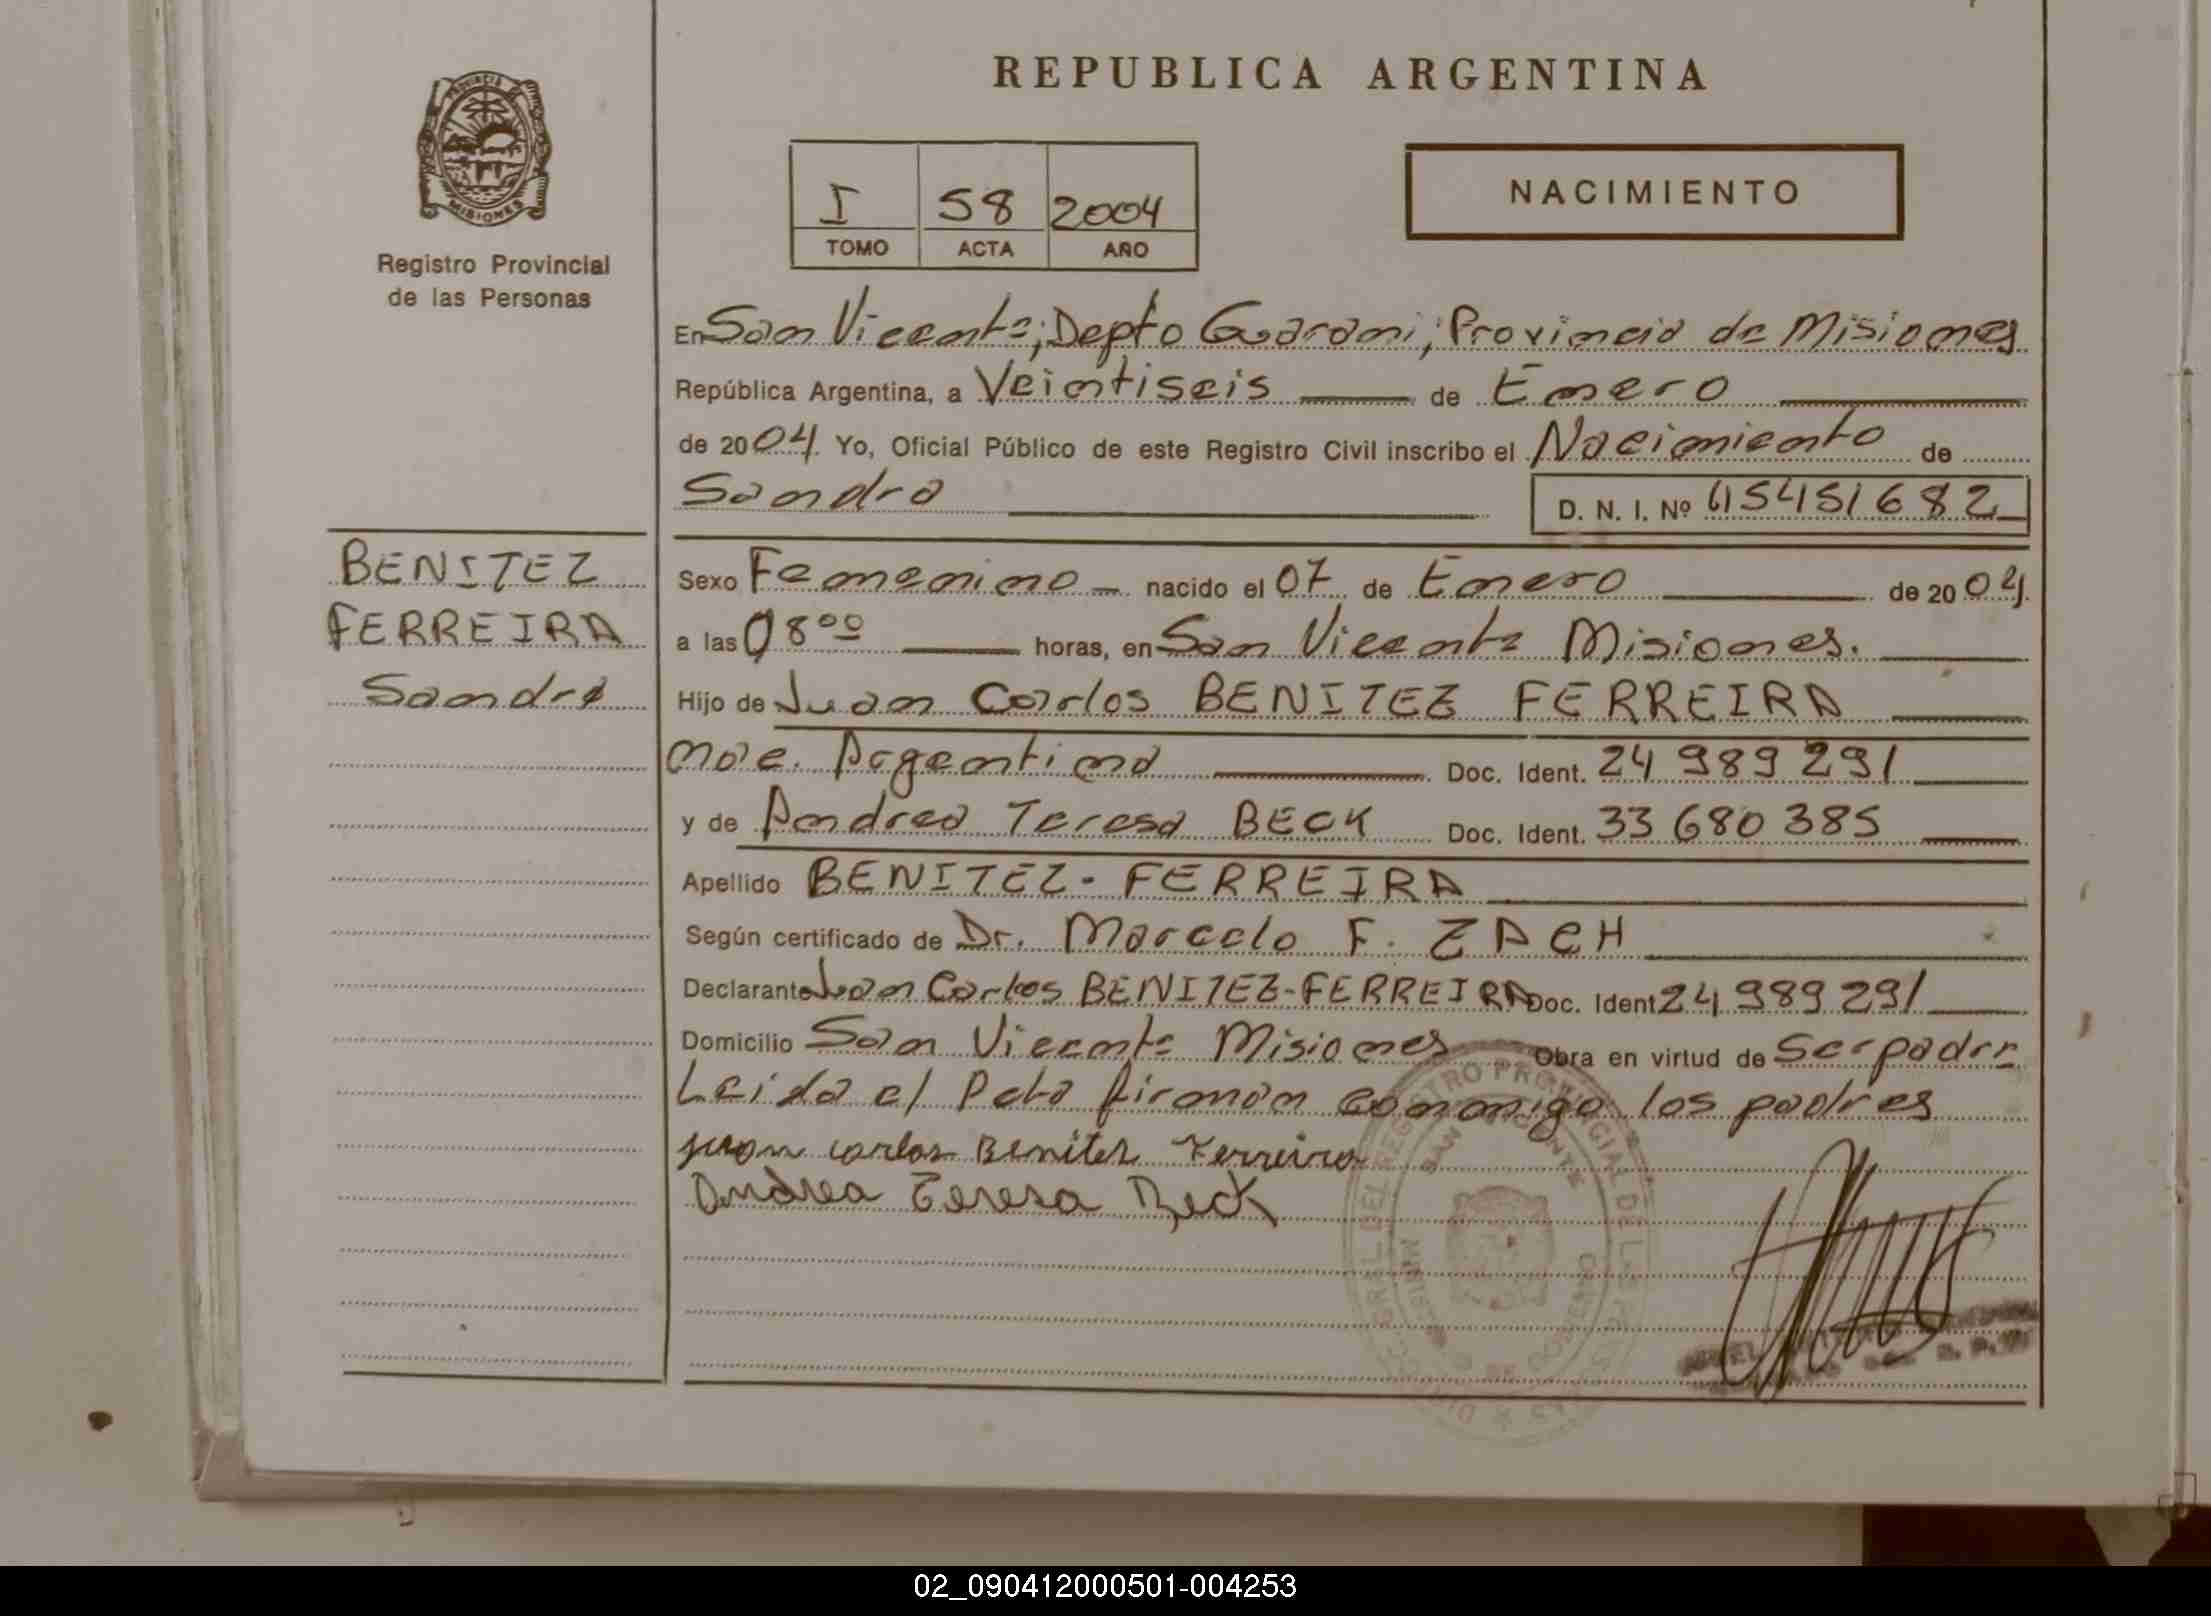 REPUBLICA ARGENTINA
PROVINCIA DE
MISIONES
Registro Provincial
de las Personas
I 58 2004
TOMO ACTA AÑO
NACIMIENTO
En San Vicente; Depto Guarani; Provincia de Misiones
República Argentina, a Veintiseis de Enero
de 2004. Yo, Oficial Público de este Registro Civil inscribo el Nacimiento de
Sandra D. N. I. Nº 45451682
BENITEZ
FERREIRA
Sandra
Sexo Femenino nacido el 07 de Enero de 2004.
a las 08⁰⁰ horas, en San Vicente Misiones.
Hijo de Juan Carlos BENITEZ FERREIRA
nac. Argentina Doc. Ident. 24 989 291
y de Andrea Teresa BECK Doc. Ident. 33 680 385
Apellido BENITEZ - FERREIRA
Según certificado de Dr. Marcelo F. ZACH
Declarante Juan Carlos BENITEZ-FERREIRA Doc. Ident 24 989 291
Domicilio San Vicente Misiones Obra en virtud de Ser padre
Leida el Acta firman conmigo los padres
juan carlos Benites Ferreira
Andrea Teresa Beck
REGISTRO PROVINCIAL DE LAS
SAN VICENTE
MINISTERIO DE GOBIERNO
02_090412000501-004253